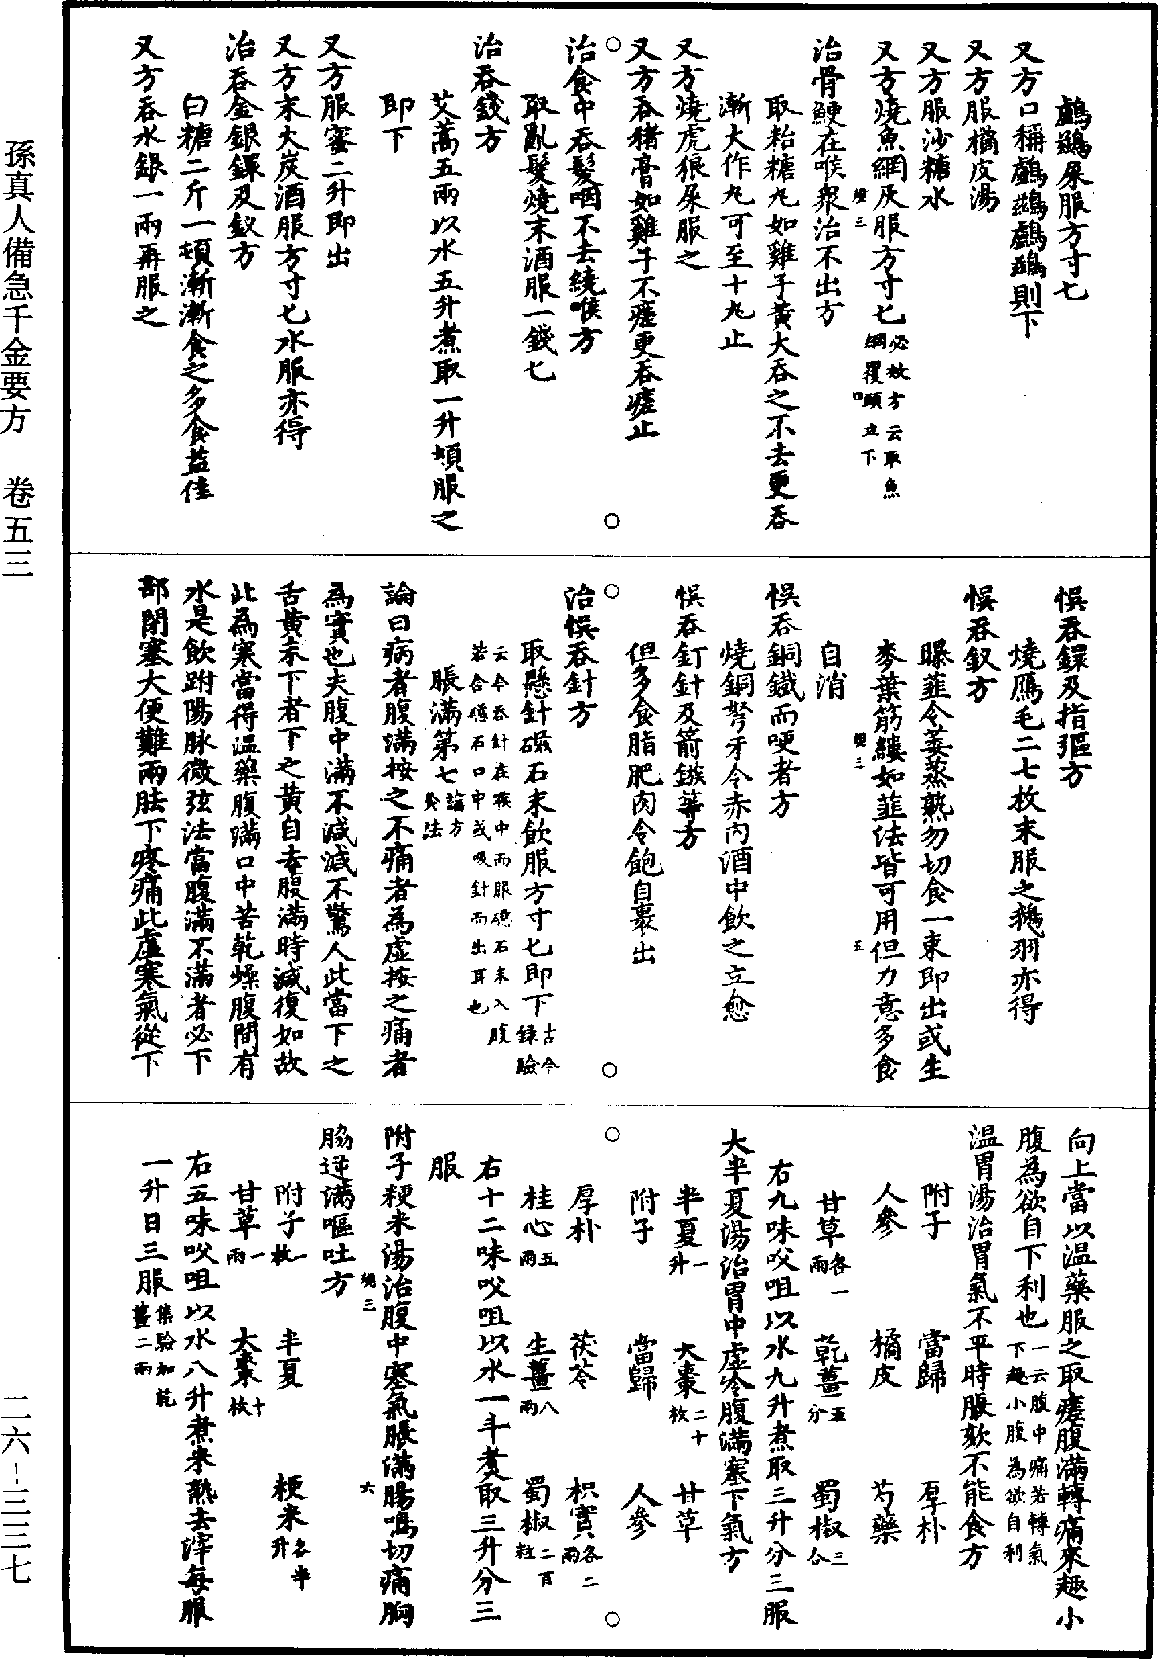 孫真人備急千金要方　卷五三
二六—三三七
鸕鷀屎服方寸匕
又方口稱鸕鷀鸕鷀則下
又方服橘皮湯
又方服沙糖水
又方燒魚網灰服方寸匕必效方云取魚網覆頭立下
治骨鯁在喉眾治不出方
取飴糖丸如雞子黃大吞之不去更吞
漸大作丸可至十丸止
又方燒虎狼屎服之
又方吞豬膏如雞子不瘥更吞瘥止
治食中吞髮咽不去繞喉方
取亂髮燒末酒服一錢匕
治吞錢方
艾蒿五兩以水五升煮取一升頓服之
即下
又方服蜜二升即出
又方末火炭酒服方寸匕水服亦得
治吞金銀鐶及釵方
白糖二斤一頓漸漸食之多食益佳
又方吞水銀一兩再服之
悮吞鐶及指彄方
燒鴈毛二七枚末服之鵝羽亦得
悮吞釵方
曝韮令萎蒸熟勿切食一束即出或生
麥葉筋縷如韮法皆可用但力意多食
自消
悮吞銅鐵而哽者方
燒銅弩牙令赤內酒中飲之立愈
悮吞釘針及箭鏃等方
但多食脂肥肉令飽自裹出
治悮吞針方
取懸針磁石末飲服方寸匕即下古今錄驗
云今吞針在喉中而服磁石末入腹
若含磁石口中或吸針而出耳也
脹滿第七論方灸法
論曰病者腹滿按之不痛者為虛按之痛者
為實也夫腹中滿不減減不驚人此當下之
舌黃未下者下之黃自去腹滿時減復如故
此為寒當得溫藥腹滿口中苦乾燥腹間有
水是飲趺陽脉微弦法當腹滿不滿者必下
部閉塞大便難兩胠下疼痛此虛寒氣從下
向上當以溫藥服之取瘥腹滿轉痛來趣小
腹為欲自下利也一云腹中痛若轉氣下趣小腹為欲自利
溫胃湯治胃氣不平時脹欬不能食方
附子　當歸　厚朴
人參　橘皮　芍藥
甘草各一兩　乾薑五分　蜀椒三合
右九味㕮咀以水九升煮取三升分三服
大半夏湯治胃中虛冷腹滿塞下氣方
半夏一升　大棗二十枚　甘草
附子　當歸　人參
厚朴　茯苓　枳實各二兩
桂心五兩　生薑八兩　蜀椒二百粒
右十二味㕮咀以水一斗煮取三升分三
服
附子粳米湯治腹中寒氣脹滿腸鳴切痛胸
脇逆滿嘔吐方
附子一枚　半夏　粳米各半升
甘草一兩　大棗十枚
右五味㕮咀以水八升煮米熟去滓每服
一升日三服集驗加乾薑二兩